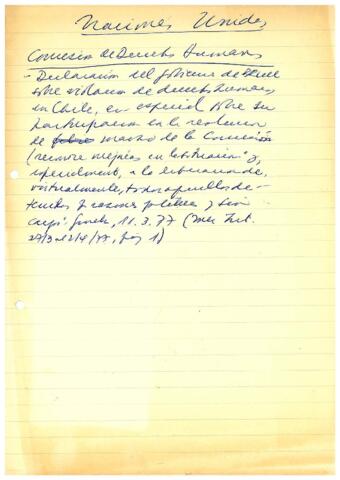 Naciones Unidas
Comision de Derechos Humanos
- Declaración del gobierno de
sobre violacion de derechos humanos
en Chile, en especial sobre su
participacion en la reunion
de marzo de la Comisión
(reconoce mejoras en la situacion y,
especialmente, a la liberacion de,
virtualmente, todos aquellos de-
tenidos p razones politicas y sin
11.3.77
27/3 12/4/77, pag 1)